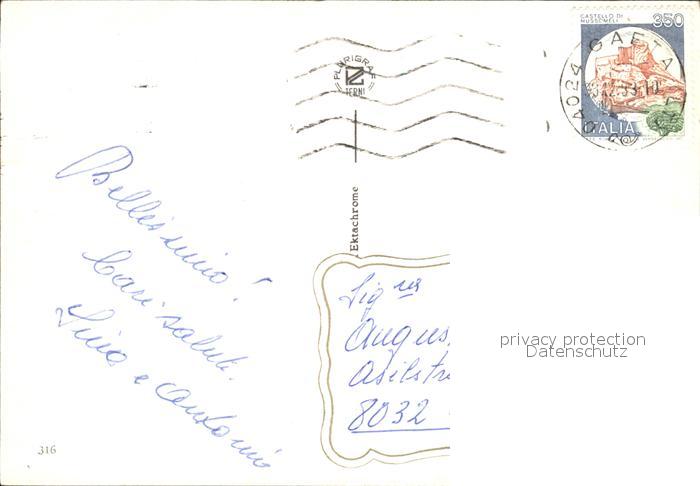 CASTELLO DI
MUSSOMELI
350
ITALIA
04024 GAETA
PLURIGRAF
TERNI
Ektachrome
Bellissimo!
Cari saluti.
Lina e
Sig.na
Augus
Asilstr
8032
privacy protection
Datenschutz
316